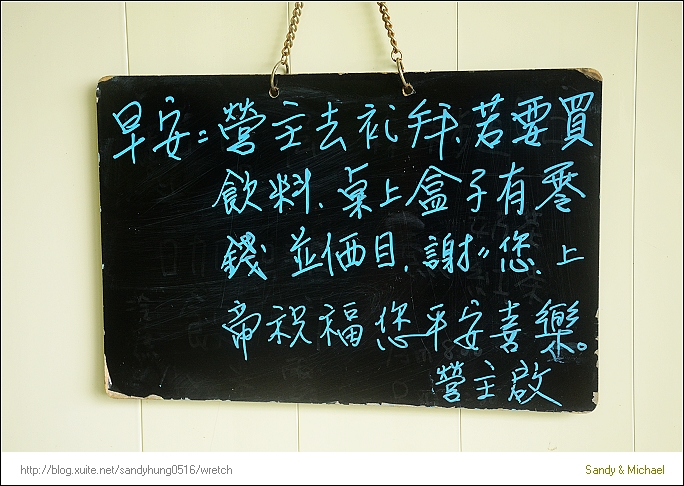 早安=營主去礼拜、若要買
飲料、桌上盒子有零
錢並価目,謝〃您、上
帝祝福您平安喜樂。
營主啟
http://blog.xuite.net/sandyhung0516/wretch
Sandy & Michael